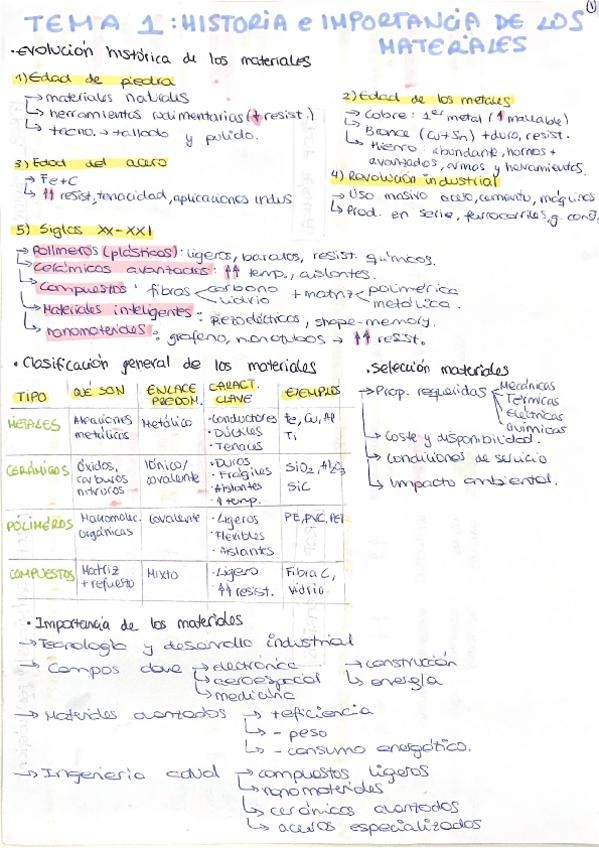 TEMA 1: HISTORIA e IMPORTANCIA DE LOS
MATERIALES
1
·Evolución histórica de los materiales
1) Edad de piedra
→ materiales naturales
↳ herramientas rudimentarias (↑ resist.)
↳ tecno. → tallado y pulido.
2) Edad de los metales
→ Cobre: 1er metal (↑ maleable)
↳ Bronce (Cu+Sn) + duro, resist.
↳ Hierro: abundante, hornos +
avanzados, armas y herramientas.
3) Edad del acero
→ Fe+C
↳ ↑↑ resist, tenacidad, aplicaciones indus
4) Revolución industrial
→ Uso masivo acero, cemento, máquinas
↳ Prod. en serie, ferrocarriles, g. const.
5) Siglos XX-XXI
→ Polímeros (plásticos): ligeros, baratos, resist. químicos.
↳ Cerámicos avanzados: ↑↑ temp., aislantes.
↳ Compuestos: fibros < carbono vidrio + matriz < polimérica metálica.
↳ Materiales inteligentes: piezoeléctricos, shape-memory.
↳ nanomateriales: grafeno, nanotubos → ↑↑ resist.
· Clasificación general de los materiales
TIPO | QUÉ SON | ENLACE PREDOM. | CARACT. CLAVE | EJEMPLOS
METALES | Aleaciones metálicas | Metálico | ·Conductores ·Dúctiles ·Tenaces | Fe, Cu, Al Ti
CERÁMICOS | Óxidos, carburos nitruros | Iónico/ covalente | ·Duros ·Frágiles ·Aislantes ·↑ temp. | SiO2, Al2O3 SiC
POLÍMEROS | Macromolec. orgánicas | Covalente | ·Ligeros ·Flexibles ·Aislantes | PE, PVC, PET
COMPUESTOS | Matriz + refuerzo | Mixto | ·Ligero ·↑↑ resist. | Fibra C, vidrio
·Selección materiales
→ Prop. requeridas < Mecánicas
Térmicas
Eléctricas
Químicas
↳ Coste y disponibilidad.
↳ Condiciones de servicio
↳ Impacto ambiental.
· Importancia de los materiales
→ Tecnología y desarrollo industrial
→ Campos clave → electrónica → construcción
↳ aeroespacial ↳ energía
↳ medicina
→ Materiales avanzados → + eficiencia
↳ - peso
↳ - consumo energético.
→ Ingeniería actual → compuestos ligeros
↳ nanomateriales
↳ cerámicos avanzados
↳ aceros especializados